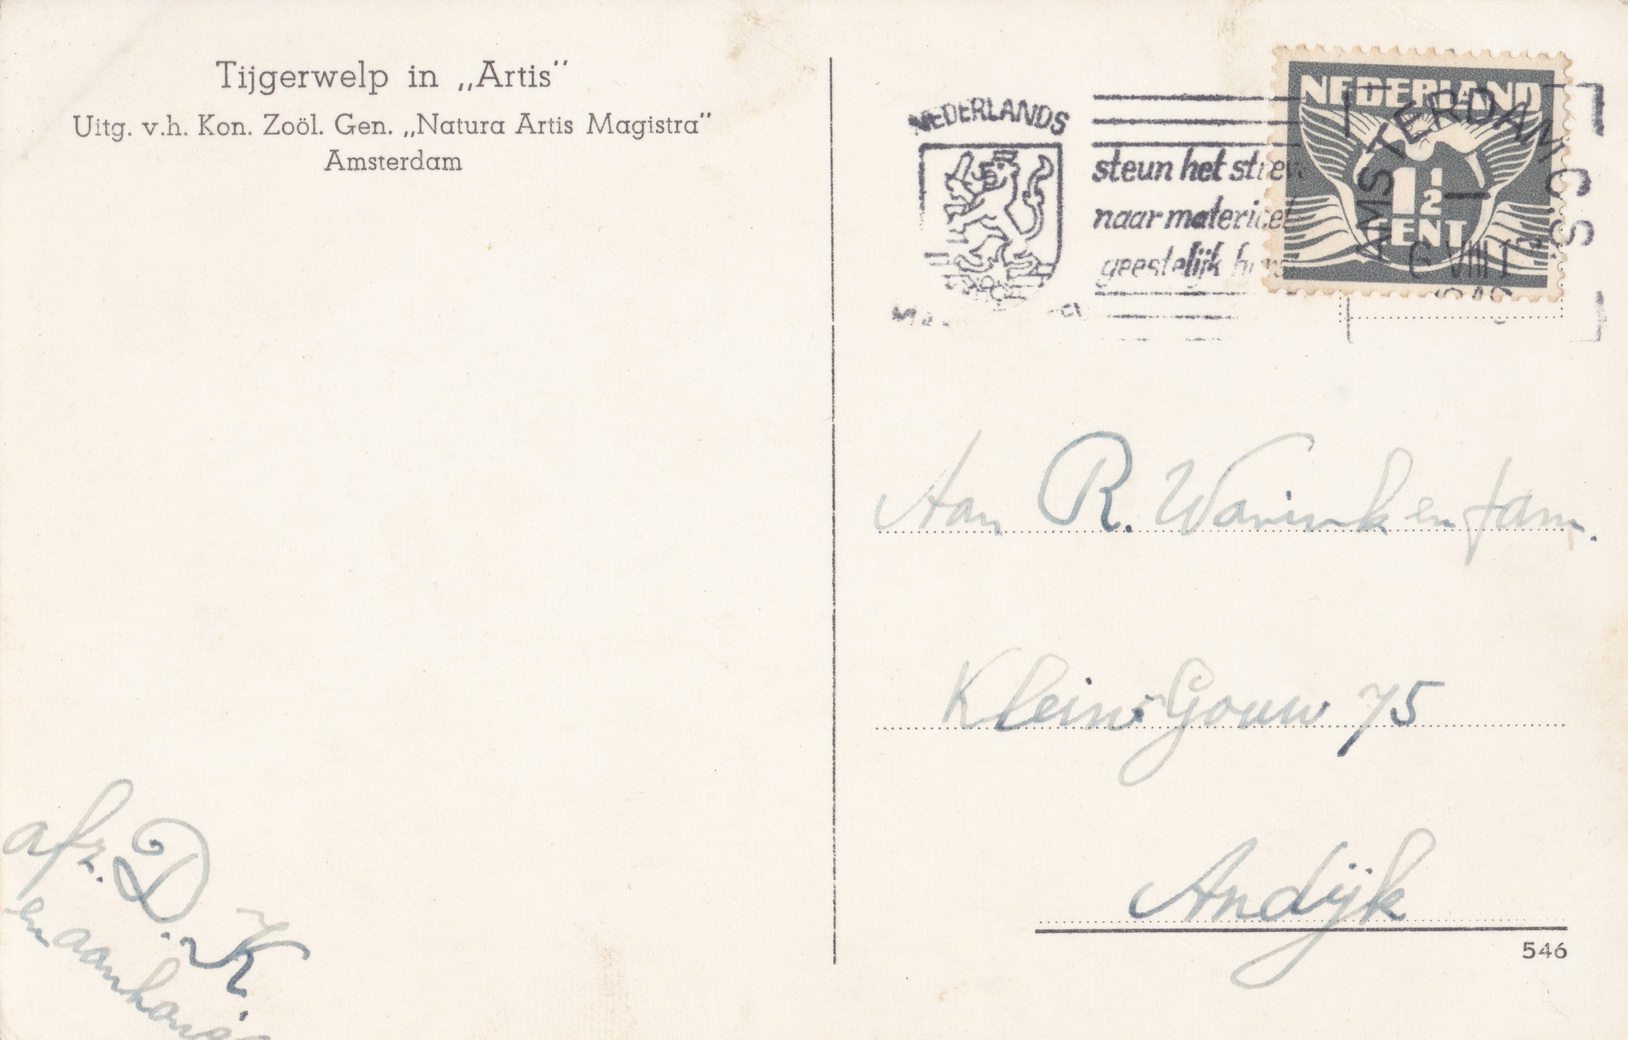 Tijgerwelp in „Artis”
Uitg. v.h. Kon. Zoöl. Gen. „Natura Artis Magistra”
Amsterdam
NEDERLANDS
steun het
naar
geestelijk
NEDERLAND
1½
CENT
AMSTERDAM C.S.
Aan R. Warink en fam.
Klein-Gouw 75
Andijk
546
afz. D. K.
en aanhang